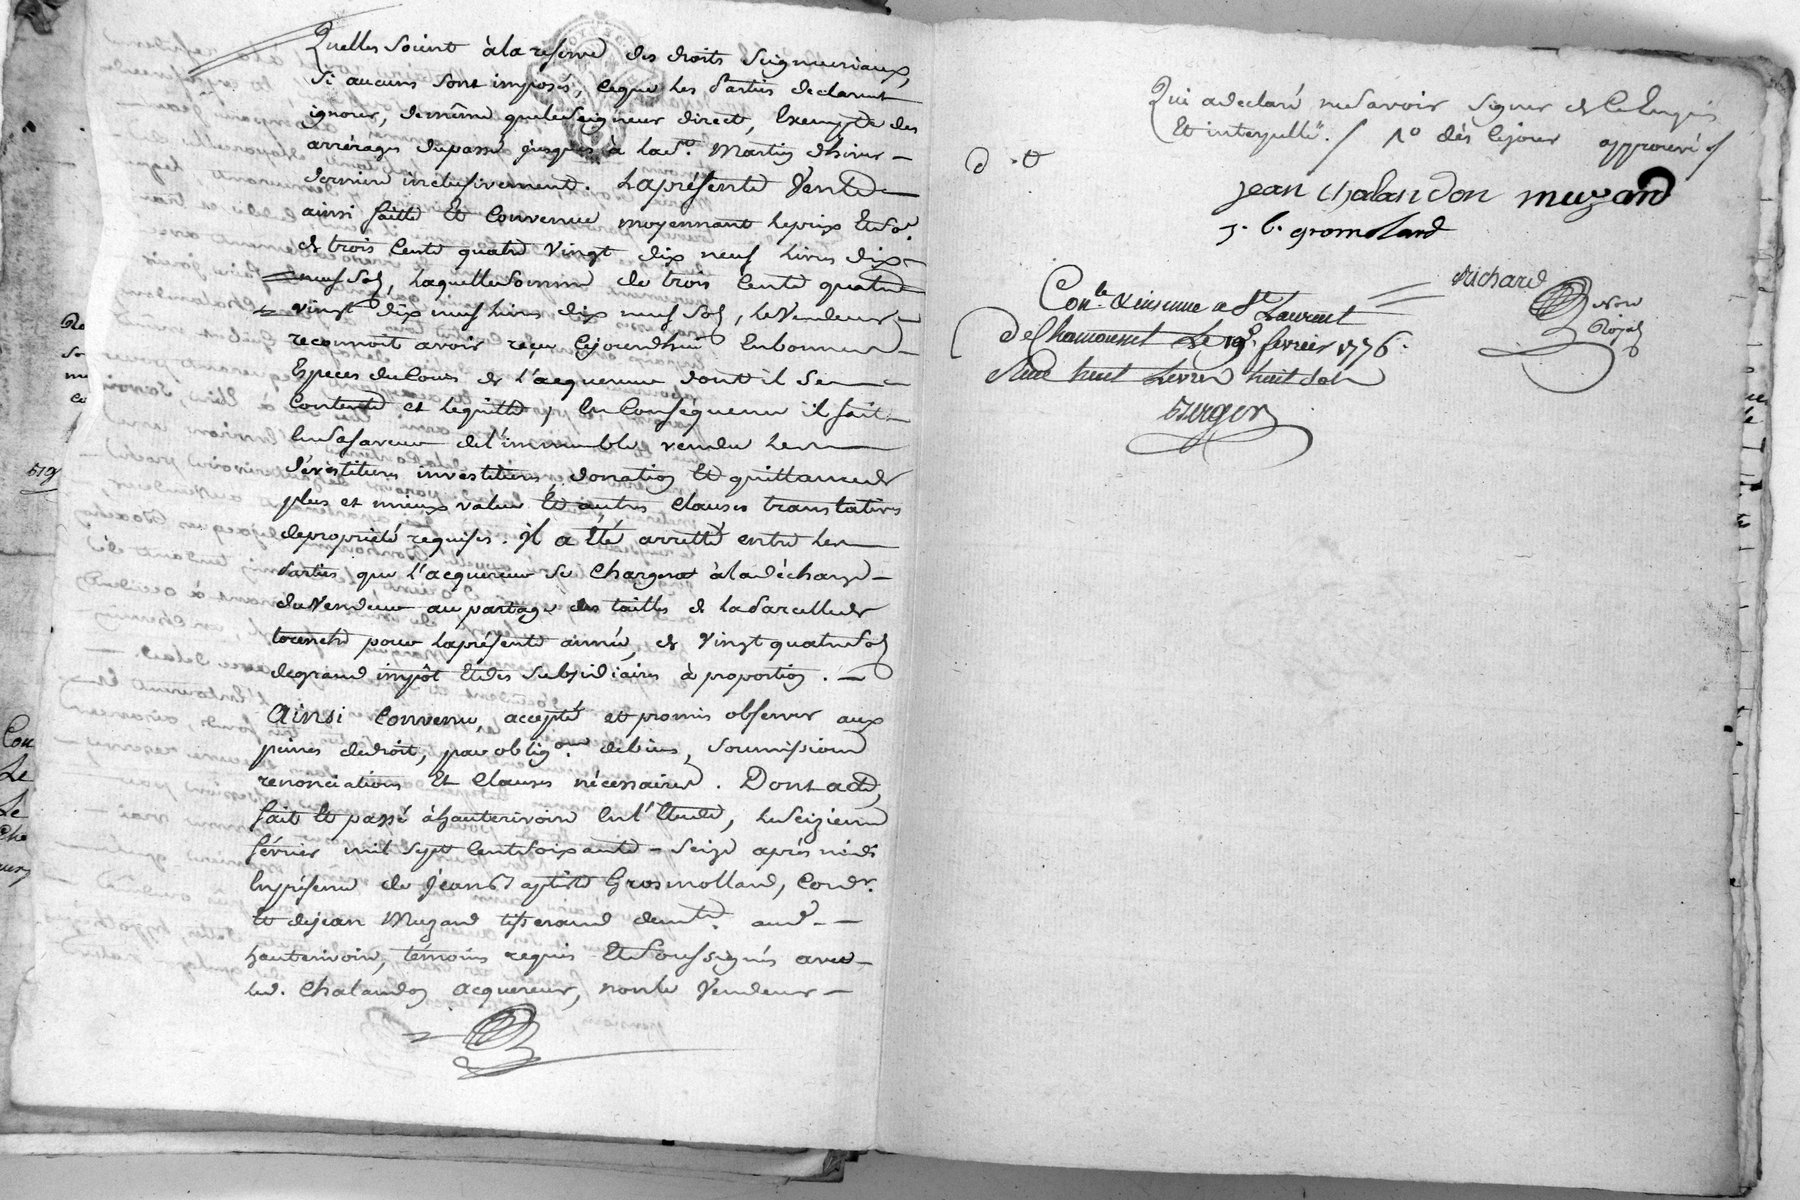 Quelles soient à la reserve des droits seigneuriaux,
si aucuns sont imposés, ceque les parties declarent
ignorer, de même que le seigneur direct, Exempte des
arrérages du passé jusques à la st. Martin dhiver
derniere inclusivement. La présente Vente
ainsi faitte Et Convenue moyennant le prix Et so.e
de trois Cents quatre Vingt dix neuf Livres dix
neuf Sols, Laquelle somme de trois Cents quatre
vingt dix neuf Livres dix neuf Sols, Le Vendeur
reconnoit avoir reçu cejourdhui En bonnes
Especes du Cours de l'acquereur dont il se
Contente et le quitte, En Conséquence il fait
En sa faveur de l'immeuble vendu les
dévestitures investitures, donation Et quittance de
plus et mieux value Et autres Clauses translatives
de propriété requises. Il a Été arretté entre les
parties que l'acquereur se Chargera à la décharge
du Vendeur au partage des tailles de la parcelle de
pour la présente année, de Vingt quatre Sols
de grand impôt Et des subsidiaires à proportion.
Ainsi Convenu, accepté et promis observer aux
peines de droit, par oblig.on de biens, soumissions
renonciations Et Clauses nécessaires. Dont acte,
fait Et passé à hauterivoire En l'Etude, Le seizieme
février mil sept Cent soixante-seize après midi
En présence de Jean Baptiste Grosmolland, Cord.r
Et de jean Muzard tisserand demts. aud.
hauterivoire, témoins requis Et soussignés avec
led. Chalandon acquereur, non le Vendeur
Qui a declaré ne savoir signer de ce Enquis
Et interpellé. / dès cejour approuvé
jean chalandon muzard
j. b. gromolard
Richard
Not.re
Royal
Con.lé a St Laurent
de Chamousset Le 19. fevrier 1776.
Reçu huit Livres huit sols
Berger